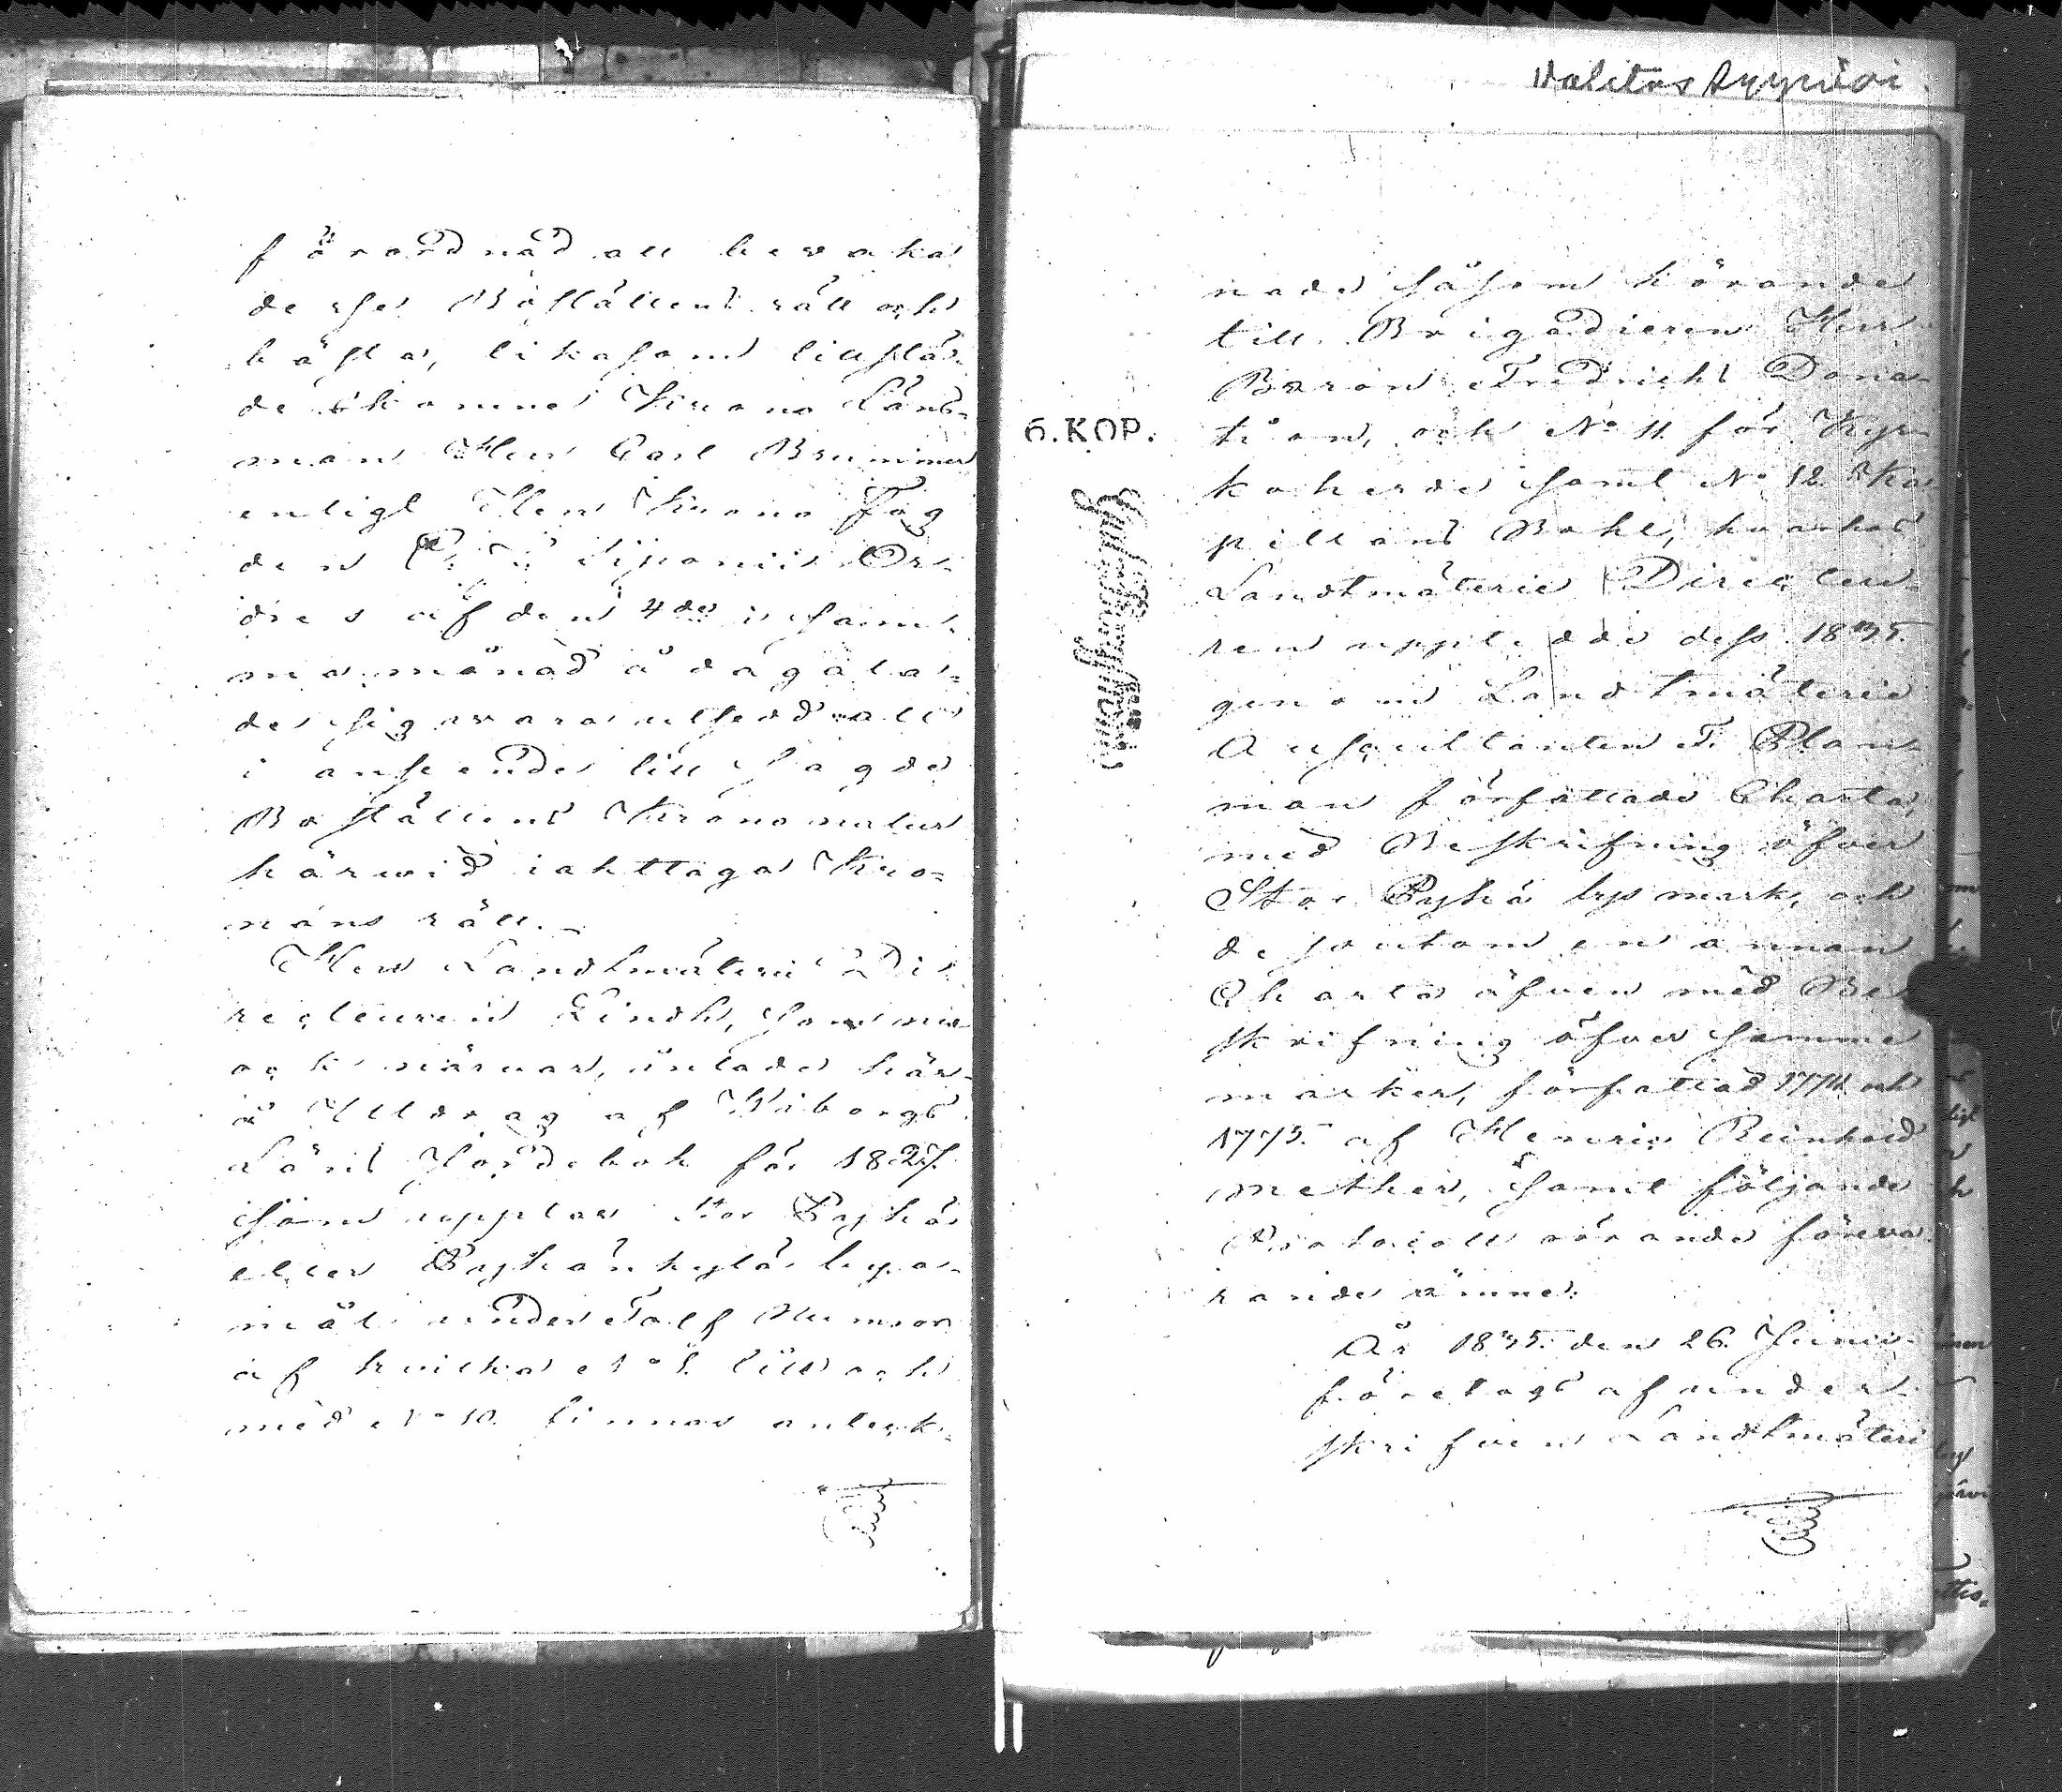 förordnad att bevaka
desse Boställens rätt och
bästa, likasom tillstä-
des komne Krono Läns-
man Herr Carl Brummer
enligt Herr Krono Fog
den Siponii Or-
dres af den 4de i sam-
ma månad ådagala-
de sig vara utsedd att
i anseende till sagde
Boställens Krono natur
härwid iakttaga Kro-
nans rätt.
Herr Landtmäteri Di
recteuren Lindh, som nu
ock närvar, inlade här-
å Utdrag af Wiborgs
Läns Jordebok för 1827.
som upptar Stor Pyhä
eller Pyhänkylä bys
mål under Tolf Numror
af hvilka No 1. till och
med No 10. finnas anteck-
Valitus Äyräpää
nade såsom hörande
till Brigadieren Herr
Baron Fredrichs Dona-
tion, och No 11 för Kyr-
koherde samt No 12 Ka
pellans Bohl, hvarhos
Landtmäterie Directeu-
ren upptedde dess 1835.
genom Landtmäterie
Auscultanten F. Plan-
man författade Charta,
med Beskrifning öfver
Stor Pyhä bys mark, och
dessutom en annan
Charta äfven med Be
skrifning öfver samme
marker, författad 1774 och
1775. af Henric Reinhold
Mether, samt följande
Protocoll rörande föreva-
rande ämne.
År 1835. den 26. Junii
företogs af under
skrifven Landtmäteri
6.KOP.